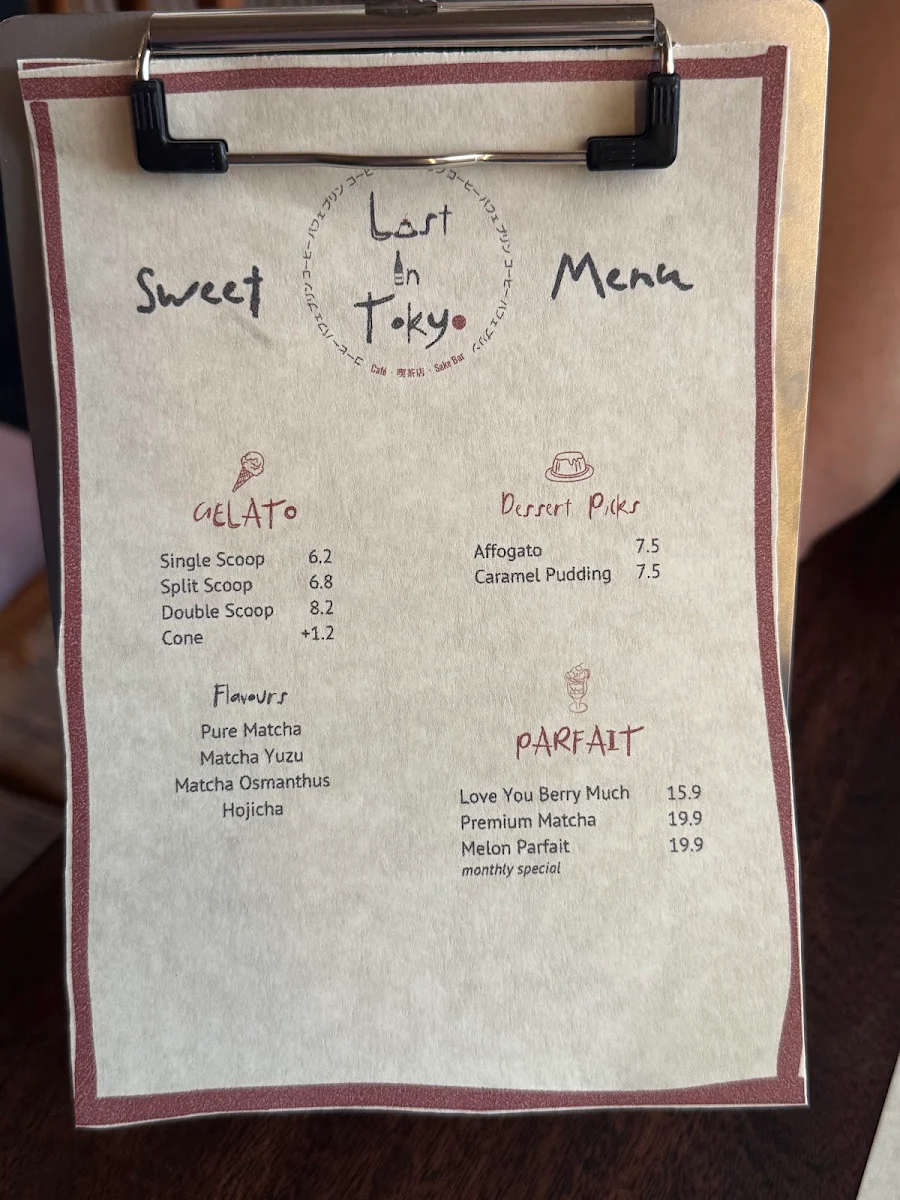 Sweet
Lost
in
Tokyo
Menu
コーヒー パフェ プリン コーヒー パフェ プリン コーヒー
コーヒー パフェ プリン
Café · 喫茶店 · Sake Bar
GELATO
Single Scoop 6.2
Split Scoop 6.8
Double Scoop 8.2
Cone +1.2
Flavours
Pure Matcha
Matcha Yuzu
Matcha Osmanthus
Hojicha
Dessert Picks
Affogato 7.5
Caramel Pudding 7.5
PARFAIT
Love You Berry Much 15.9
Premium Matcha 19.9
Melon Parfait 19.9
monthly special